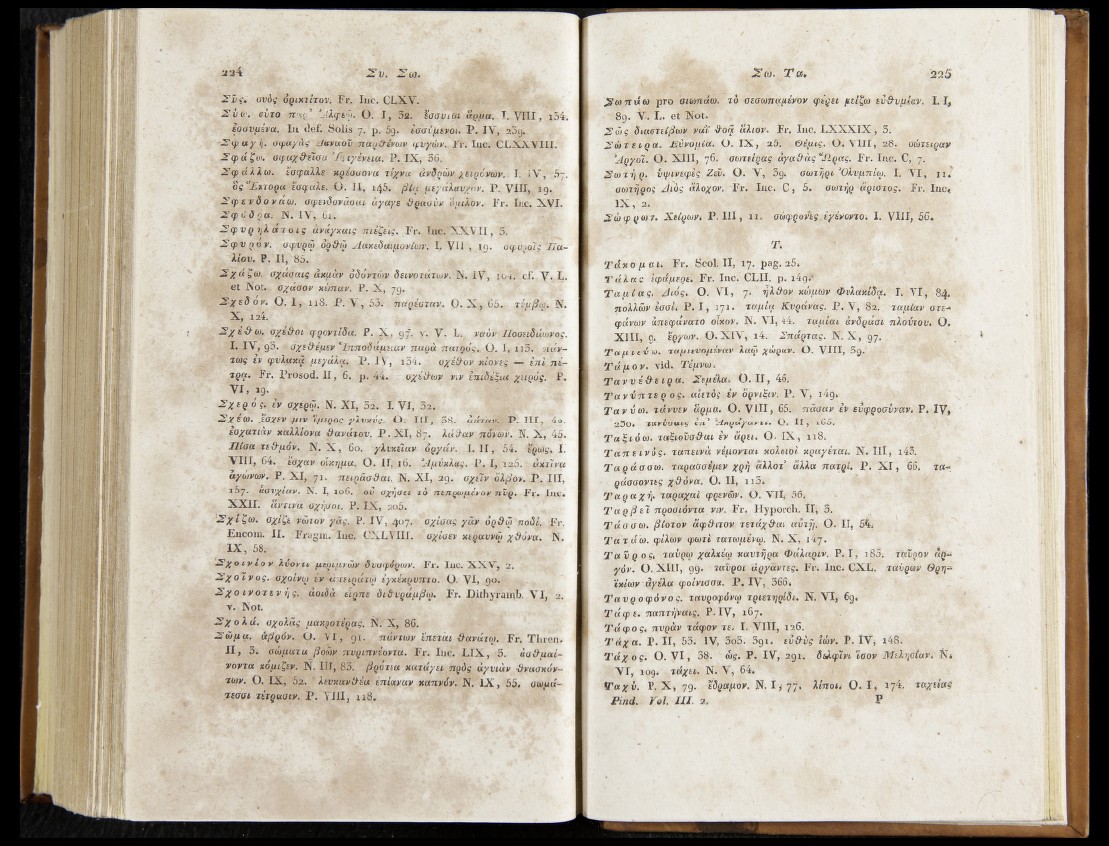 224 Συ. Σω.
Σῦς. συὸς ὀρικτίτου. Fr. Inc. CLXV.
Σύω. σύτο παρ' Ἀλφεῷ. O. I, 32. ἔσσυται ἅρμα. I. VIII, 134.
ἐσσυμένα. In def. Solis 7. p. 59. ἐσσύμενοι. P. IV, 239.
Σφαγή. σφαγὰς Δαναοῦ παρθένων φυγών. Fr. Inc. CLXXVIII.
Σφάζω. σφαχθεῖσα Ἰφιγένεια. P. IX, 36.
Σφάλλω. ἔσφαλλε κρέσσονα τέχνα ἀνδρῶν χειρόνων. I. IV, 57.
ὃς Ἕκτορα ἔσφαλε. O. II, 145. βία μεγάλαυχον. P. VIII, 19.
Σφενδονάω. σφενδονᾶσαι ἄγαγε θρασὺν ὅμιλον. Fr. Inc. XVI.
Σφόδρα. N. IV, 61.
Σφυρηλάτοις ἀνάγκαις πιέζεις. Fr. Inc. XXVII, 3.
Σφυρόν. σφυρῷ ὀρθῷ Λακεδαιμονίων. I. VII, 19. σφυροῖς Πα-
λίου. P. II, 85.
Σχάζω. σχάσαις ἀκμὰν ὀδόντων δεινοτάτων. N. IV, 104. cf. V. L.
et Not. σχάσον κώπαν. P. X, 79.
Σχεδόν. O. I, 118. P. V, 53. παρέσταν. O. X, 65. τύμβῳ. N.
X, 124.
Σχέθω. σχέθοι φροντίδα. P. X, 97. v. V. L. ναὸν Ποσειδάωνος.
I. IV, 93. σχεθέμεν Ἱπποδάμειαν παρὰ πατρός. O. I, 113. πάν-
τως ἐν φυλακᾷ μεγάλᾳ. P. IV, 134. σχέθον κίονες — ἐπὶ πέ-
τρᾳ. Fr. Prosod. II, 6. p. 44. σχέθων νιν ἐπιδέξια χειρός. P.
VI, 19.
Σχερός. ἐν σχερῷ. N. XI, 52. I. VI, 32.
Σχέω. ἔσχεν μιν ἵμερος γλυκύς. O. III, 58. ἀάταν. P. III, 42.
ἐσχατιὰν καλλίονα θανάτου. P. XI, 87. λάθαν πόνων. N. X, 45.
Πίσα τεθμόν. N. X, 60. γλυκεῖαν ὀργάν. I. II, 54. ἔρως. I.
VIII, 64. ἔσχαν οἴκημα. O. II, 16. Ἀμύκλας. P. I, 125. ἀκτῖνα
ἀγώνων. P. XI, 71. πειρᾶσθαι. N. XI, 29. σχεῖν ὄλβον. P. III,
157. ἀσυχίαν. N. I, 106. οὐ σχήσει τὸ πεπρωμένον πῦρ. Fr. Inc.
XXII. ἄντινα σχήσοι. P. IX, 205.
Σχίζω. σχίζε νῶτον γᾶς. P. IV, 407. σχίσας γᾶν ὀρθῷ ποδί. Fr.
Encom. II. Fragm. Inc. CXLVIII. σχίσεν κεραυνῷ χθόνα. N.
IX, 58.
Σχοινίον λύοντι μεριμνῶν δυσφόρων. Fr. Inc. XXV, 2.
Σχοῖνος. σχοίνῳ ἐν ἀπειράτῳ ἐγκέκρυπτο. O. VI, 90.
Σχοινοτενής. ἀοιδὰ εἷρπε διθυράμβῳ. Fr. Dithyramb. VI, 2.
v. Not.
Σχολά. σχολᾶς μακροτέρας. N. X, 86.
Σῶμα. ἁβρόν. O. VI, 91. πάντων ἕπεται θανάτῳ. Fr. Thren.
II, 3. σώματα βοῶν πυριπνέοντα. Fr. Inc. LIX, 3. ἀσθμαί-
νοντα κόμιζεν. N. III, 83. βρότια κατάγει πρὸς ἀγυιὰν θνασκόν-
των. O. IX, 52. λευκανθέα ἐπίαναν καπνόν. N. IX, 55. σωμά-
τεσσι τέτρασιν. P. VIII, 118.
Σω. Τα. 225
Σωπάω pro σιωπάω. τὸ σεσωπαμένον φέρει μείζω εὐθυμίαν. I. I,
89. V. L. et Not.
Σῶς διαστείβων ναῦ θοᾷ ἅλιον. Fr. Inc. LXXXIX, 3.
Σώτειρα. Εὐνομία. O. IX, 25. Θέμις. O. VIII, 28. σώτειραν
Ἀργοῖ. O. XIII, 76. σωτείρας ἀγαθὰς Ὥρας. Fr. Inc. C, 7.
Σωτήρ. ὑψινεφὲς Ζεῦ. O. V, 39. σωτῆρι Ὀλυμπίῳ. I. VI, 11.
σωτῆρος Διὸς ἄλοχον. Fr. Inc. C, 5. σωτὴρ ἄριστος. Fr. Inc.
IX, 2.
Σώφρων. Χείρων. P. III, 11. σώφρονες ἐγένοντο. I. VIII, 56.
Τ.
Τάκομαι. Fr. Scol. II, 17. pag. 25.
Τάλας ἐφάμερε. Fr. Inc. CLII. p. 149.
Ταμίας. Διός. O. VI, 7. ἦλθον κώμων Φυλακίδᾳ. I. VI, 84.
πολλῶν ἐσσί. P. I, 171. ταμίᾳ Κυράνας. P. V, 82. ταμίαν στε-
φάνων ἀπεφάνατο οἶκον. N. VI, 44. ταμίαι ἀνδράσι πλούτου. O.
XIII, 9. ἔργων. O. XIV, 14. Σπάρτας. N. X, 97.
Ταμιεύω. ταμιευομέναν λαῷ χώραν. O. VIII, 39.
Τάμον. vid. Τέμνω.
Τανυέθειρα. Σεμέλα. O. II, 46.
Τανύπτερος. αἰετὸς ἐν ὄρνιξιν. P. V, 149.
Τανύω. τάνυεν ἅρμα. O. VIII, 65. πᾶσαν ἐν εὐφροσύναν. P. IV,
230. τανύσαις ἐπ' Ἀκράγαντι. O. II, 165.
Ταξιόω. ταξιοῦσθαι ἐν ἄρει. O. IX, 118.
Ταπεινός. ταπεινὰ νέμονται κολοιοὶ κραγέται. N. III, 143.
Ταράσσω. ταρασσέμεν χρὴ ἄλλοτ' ἄλλα πατρί. P. XI, 66. τα-
ράσσοντες χθόνα. O. II, 113.
Ταραχή. ταραχαὶ φρενῶν. O. VII, 56.
Ταρβεῖ προσιόντα νιν. Fr. Hyporch. II, 3.
Τάσσω. βίοτον ἄφθιτον τετάχθαι αὐτῇ. O. II, 54.
Τατάω. φίλων φωτὶ τατωμένῳ. N. X, 147.
Ταῦρος. ταύρῳ χαλκέῳ καυτῆρα Φάλαριν. P. I, 185. ταῦρον ἀρ-
γόν. O. XIII, 99. ταῦροι ἀργάντες. Fr. Inc. CXL. ταύρων Θρη-
ϊκίων ἀγέλα φοίνισσα. P. IV, 366.
Ταυροφόνος. ταυροφόνῳ τριετηρίδι. N. VI, 69.
Τάφε. παπτήναις. P. IV, 167.
Τάφος. πυρὰν τάφον τε. I. VIII, 126.
Τάχα. P. II, 53. IV, 303. 391. εὐθὺς ἰών. P. IV, 148.
Τάχος. O. VI, 38. ὡς. P. IV, 291. δελφῖνι ἴσον Μελησίαν. N.
VI, 109. τάχει. N. V, 64.
Ταχύ. P. X, 79. ἔδραμον. N. I, 77. λίποι. O. I, 174. ταχείας
Pind. Vol. III. 2. P